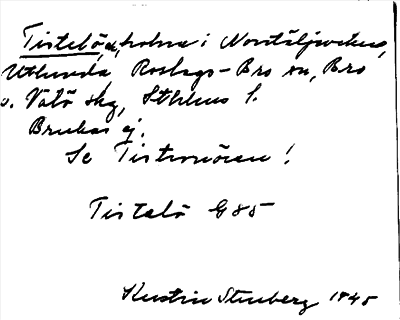 Tistelö, holme i Norrtäljeviken,
Utlunda Roslags-Bro sn, Bro
o. Vätö skg, Sthlms l.
Brukas ej.
Se Tistronören!
Tistelö G85
Kerstin Stenberg 1945